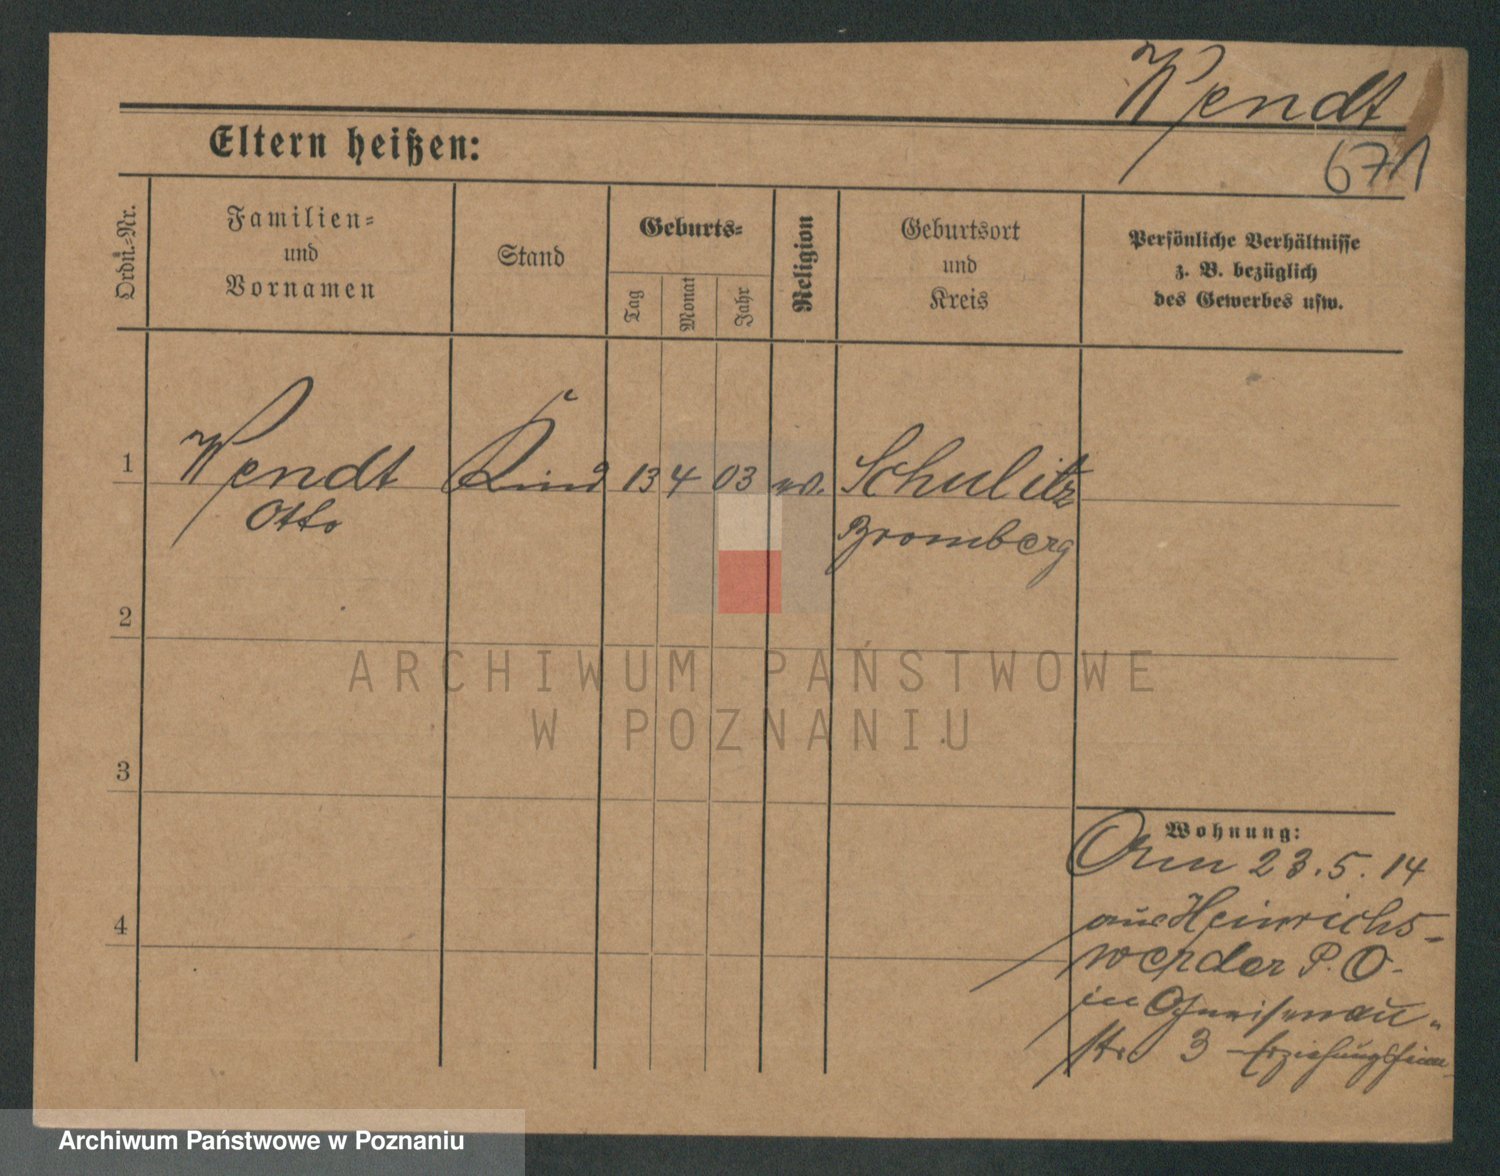 Wendt
671
Eltern heißen:
Ordn.-Nr.
Familien-
und
Vornamen
Stand
Geburts-
Tag
Monat
Jahr
Religion
Geburtsort
und
Kreis
Persönliche Verhältnisse
z. B. bezüglich
des Gewerbes usw.
1 Wendt Kind 13 4 03 ev. Schulitz
Otto Bromberg
2
3
4
Wohnung:
Am 23.5.14
aus Heinrichs-
werder P. O.
in Gneisenau-
str. 3 Erziehungsheim
ARCHIWUM PAŃSTWOWE
W POZNANIU
Archiwum Państwowe w Poznaniu